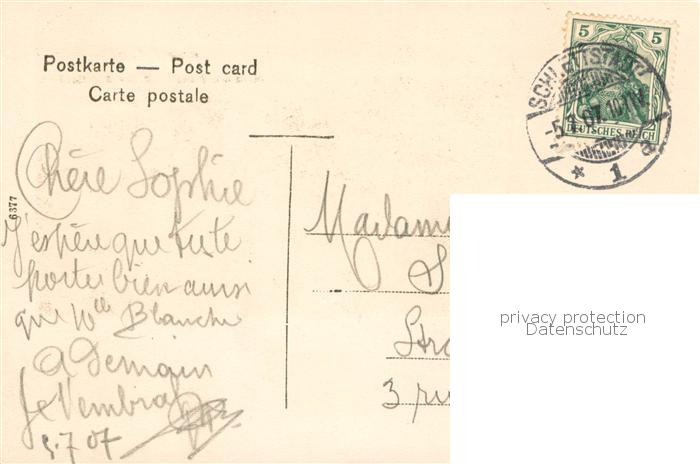 Postkarte — Post card
Carte postale
5 5
SCHLETTSTADT
-5.7.07.10-11V.
DEUTSCHES REICH
* 1 a
6377
Chère Sophie
J'espère que tu te
portes bien ainsi
que Mlle Blanche
A Demain
Je t'embrasse
5.7.07
Madame
S
Stra
3 rue
privacy protection
Datenschutz